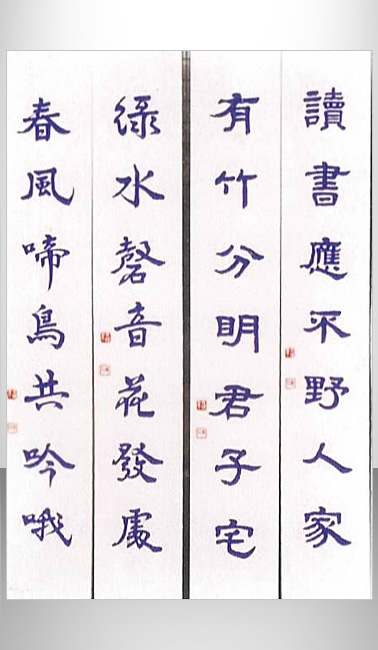 讀書應不野人家
有竹分明君子宅
綠水磬音花發處
春風啼鳥共吟哦